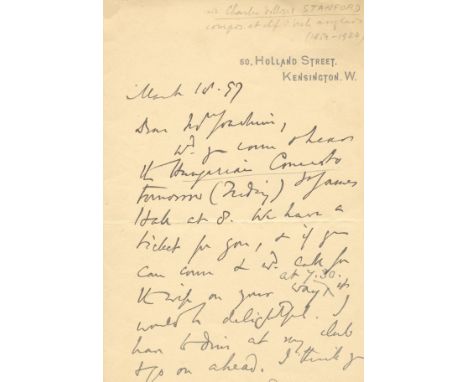 Sir Charles Villiers STANFORD
compos. et chef d'orch. anglais
(1852-1924)
50, HOLLAND STREET.
KENSINGTON. W.
March 18. 97
Dear Mr Joachim,
Wd. you come & hear
the Hungarian Concerto
tomorrow (Friday) St James
Hall at 8. We have a
ticket for you, & if you
can come & wd. call for
at 7.30.
the wife on your way it
would be delightful. I
have to dine at my club
& go on ahead. I think you